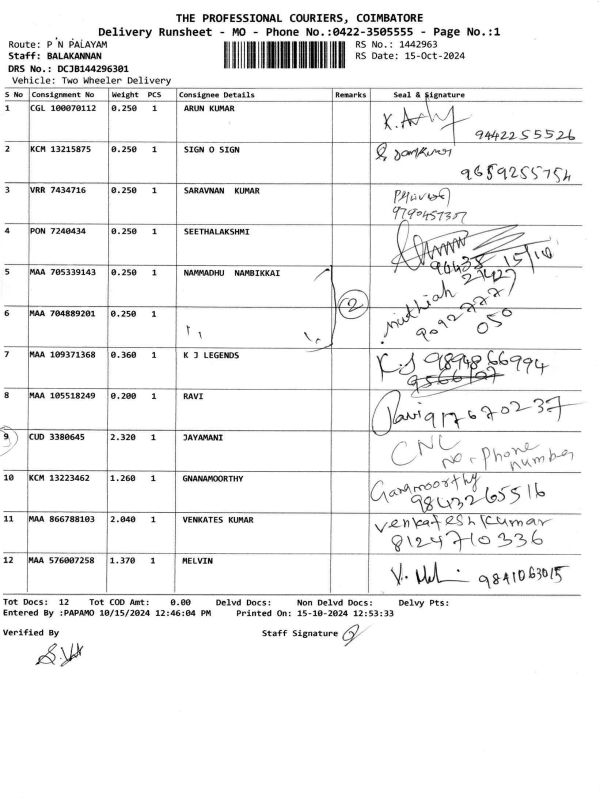 THE PROFESSIONAL COURIERS, COIMBATORE
Delivery Runsheet - MO - Phone No.:0422-3505555 - Page No.:1
Route: P N PALAYAM RS No.: 1442963
Staff: BALAKANNAN RS Date: 15-Oct-2024
DRS No.: DCJB144296301
Vehicle: Two Wheeler Delivery
S No Consignment No Weight PCS Consignee Details Remarks Seal & Signature
1 CGL 100070112 0.250 1 ARUN KUMAR
9442255526
2 KCM 13215875 0.250 1 SIGN O SIGN
9659255754
3 VRR 7434716 0.250 1 SARAVNAN KUMAR
9790457357
4 PON 7240434 0.250 1 SEETHALAKSHMI
15/10
5 MAA 705339143 0.250 1 NAMMADHU NAMBIKKAI
2
6 MAA 704889201 0.250 1
9092777
050
7 MAA 109371368 0.360 1 K J LEGENDS K.J 9894866994
8 MAA 105518249 0.200 1 RAVI Ravi 9176670237
9 CUD 3380645 2.320 1 JAYAMANI CNL
No. Phone
number
10 KCM 13223462 1.260 1 GNANAMOORTHY Ganamoorthy
9843265516
11 MAA 866788103 2.040 1 VENKATES KUMAR Venkatesh kumar
8124710336
12 MAA 576007258 1.370 1 MELVIN 9841063015
Tot Docs: 12 Tot COD Amt: 0.00 Delvd Docs: Non Delvd Docs: Delvy Pts:
Entered By :PAPAMO 10/15/2024 12:46:04 PM Printed On: 15-10-2024 12:53:33
Verified By Staff Signature